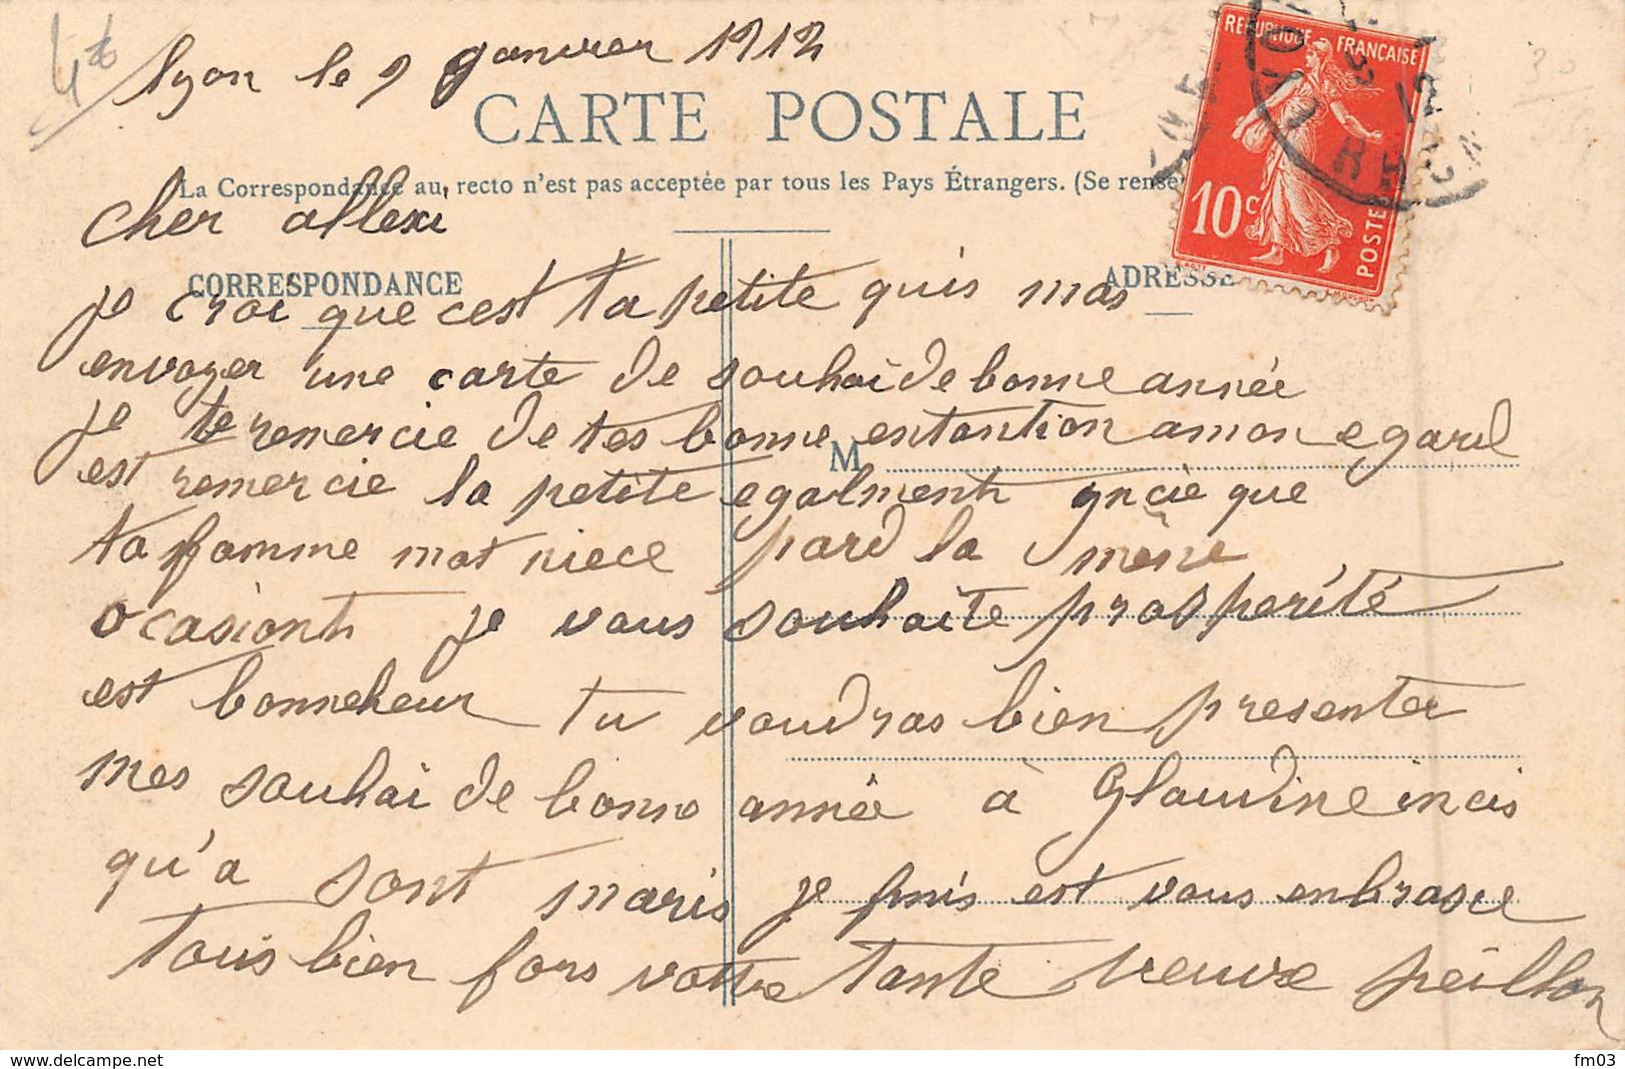 4 €
Lyon le 9 Janvier 1912
CARTE POSTALE
La Correspondance au recto n'est pas acceptée par tous les Pays Étrangers. (Se rense
REPUBLIQUE FRANÇAISE
10 c
POSTES
RHONE
cher allexi
CORRESPONDANCE
ADRESSE
je croi que cest ta petite quis mas
envoyer une carte de souhai de bonne année
je te remercie de tes bonne entantion a mon egard
M
est remercie la petite egalment
que
ta famme mat niece pard la mème
ocasiont je vous souhaite prospérité
est bonneheur tu voudras bien presenter
mes souhai de bonne année à Glaudine incis
qu'a sont maris je finis est vous enbrasse
tous bien fors vottre tante veuve peillon
delcampe.net
fm03